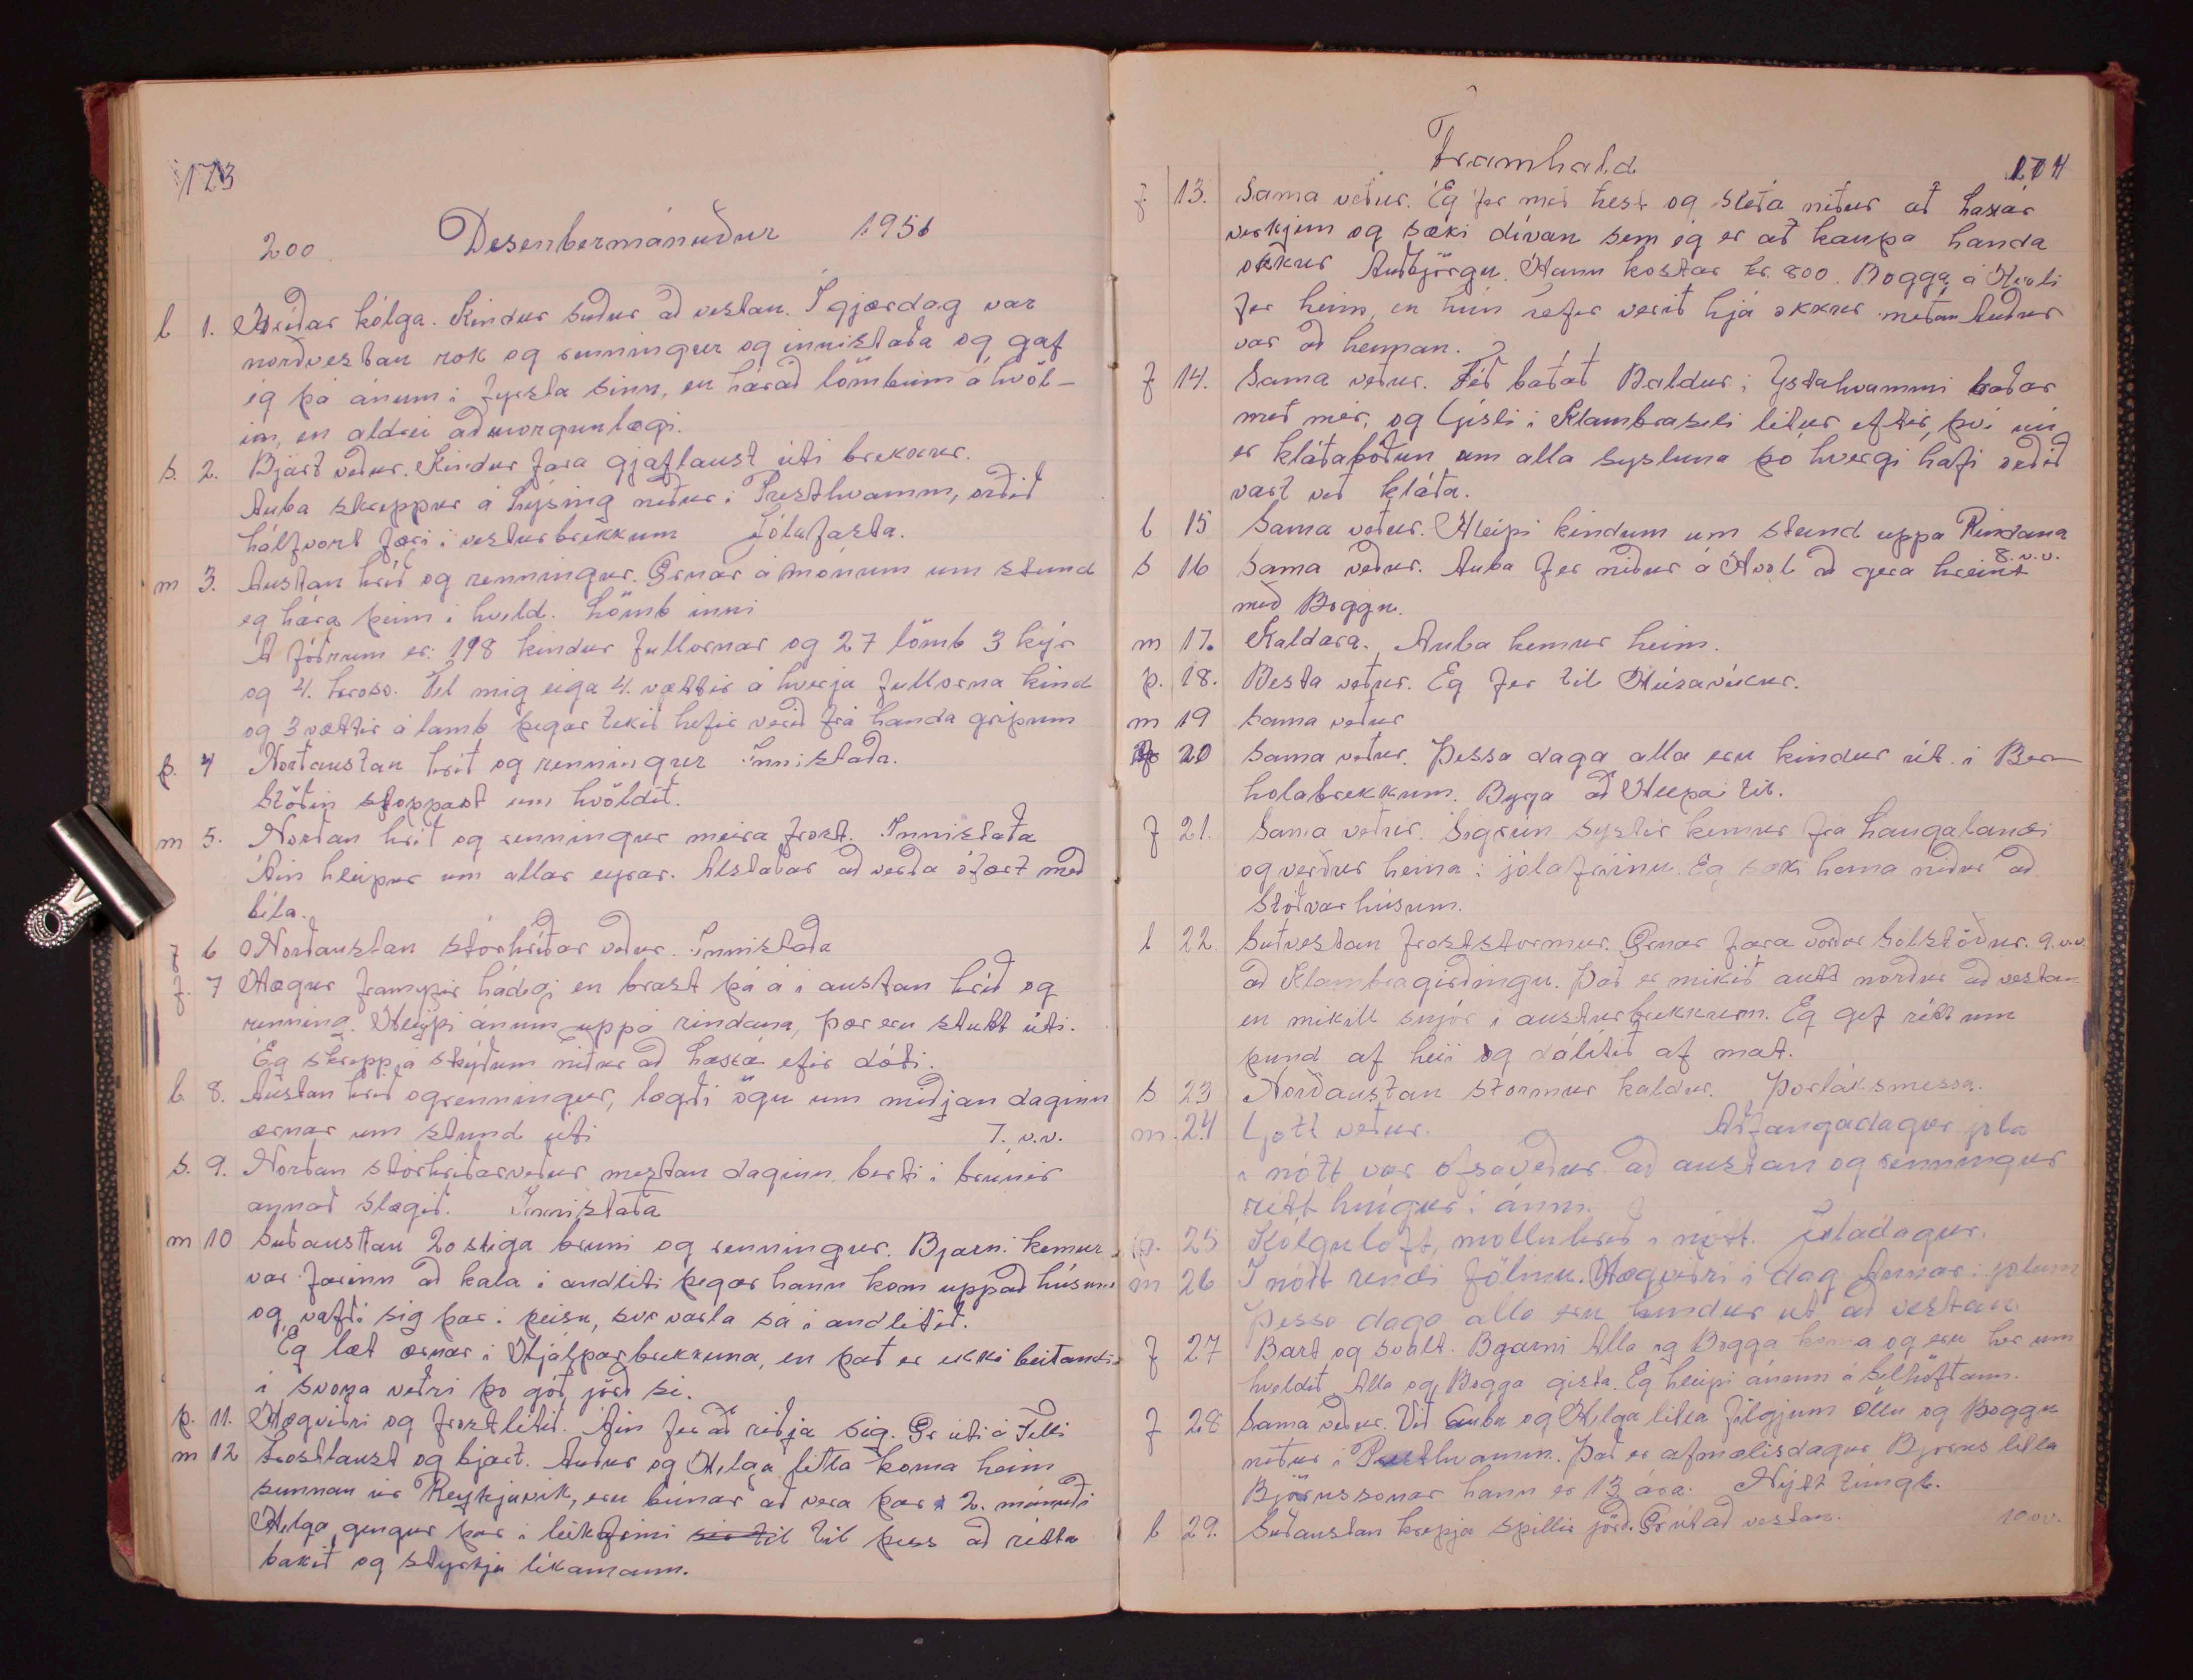 173
200. Desenbermánuður 1956
l 1. Hríðar kólga. Kindur suður að vestan. Í gjærdag var
norðvestan rok og renningur og innistaða og gaf
ég þá ánum í fyrsta sinn, en hárað lömbum á kvöl-
im, en aldrei að morgunlagi.
s. 2. Bjart veður. Kindur fara gjaflaust úti brekkur.
Auba skreppur á Lýsing niður í Presthvamm, orðið
hálfvont færi í vesturbrekkum Jólafasta.
m 3. Austan hríð og renningur. Ærnar á mónum um stund
eg hára þeim í kveld. Lömb inni
Á fóðrum er: 198 kindur fullornar og 27 lömb 3 kýr
og 4. hross. Tel mig eiga 4. vættir á hverja fullorna kind
og 3 vættir á lamb þegar tekið hefir verið frá handa gripum
þ. 4 Norðaustan hríð og renningur Innistaða.
Stöðin stoppast um kvöldið.
m 5. Norðan hríð og renningur meira frost. Innistaða
Áin hleipur um allar eyrar. Alstaðar að verða ófært með
bíla.
f 6 Norðaustan stórhríðar veður. Innistaða
f. 7 Hægur framyfir hádegi en brast þá á í austan hríð og
renning. Hleypi ánum uppá rindana, þær eru stutt úti.
Ég skrepp á skýðum niður að Laxá efir dóti.
l. 8. Austan hríð og renningur, lagði ögn um miðjan daginn
ærnar um stund úti 7. v.v.
s. 9. Norðan stórhríðarveður mestan daginn, berti í brúnir
annað slagið. Innistaða
m 10 Suðaustan 20 stiga bruni og renningur. Bjarni kemur
var farinn að kala í andliti þegar hann kom uppað húsum
og vafði sig þar í peisu, svo varla sá í andlitið.
Ég læt ærnar í Hjálparbrekkuna, en það er ekki beitandi
í svona veðri þo góð jörð sé.
þ. 11. Hægviðri og frostlítið. Áin fer að riðja sig. Er úti á Felli
m 12 Frostlaust og bjart. Auður og Helga litla koma heim
sunnan úr Reykjavík, eru búnar að vera þar í 2. mánuði
Helga gengur þar í leikfimi til þess að rétta
bakið og styrkja líkamann.
Framhald
174
f. 13. Sama veður. Ég fer með hest og sleða niður að Laxár
verkjun og sæki dívan sem ég er að kaupa handa
okkur Auðbjörgu. Hann kostar kr. 800. Bogga á Hvoli
fer heim, en hún hefur verið hjá okkur meðan Auður
var að heiman.
f 14. Sama veður. Féð baðað Baldur í Ystahvammi baðar
með mér, og Gísli í Klambraseli litur eftir, því nú
er kláðaböðun um alla sysluna þó hvergi hafi orðið
vart við kláða.
l 15 Sama veður. Hleipi kindum um stund uppa Rindana
8. v.v.
s 16 Sama veður. Auba fer niður á Hvol að gera hreint
með Boggu.
m 17. Kaldara. Auba kemur heim.
þ. 18. Besta veður. Eg fer til Húsavíkur.
m 19 Sama veður
20 Sama veður. Þessa daga alla eru kindur út í Ber-
holabrekkum. Byga að Hleipa til.
f 21. Sama veður. Sigrún systir kemur fra Laugalandi
og verður heima í jólafríinu. Ég sæki hana niður að
Stöðvarhúsum.
l 22. Suðvestan froststormur. Ærnar fara norður Sólstöður. 9. v.v.
að Klambragirðingu. Það er mikið autt norður að vestan
en mikill snjór í austurbrekkum. Eg gef rétt um
pund af heii og dálítið af mat.
s 23 Norðaustan stormur kaldur. Þorláksmessa.
m. 24 Gott veður. Aðfangadagur jóla
í nótt var ofsaveður að austan og renningur
rétt hnígur í ánni.
þ. 25 Kólguloft, mollu hríð í nótt. Jóladagur.
m 26 Í nótt rendi fölinu. Hægviðri í dag. Annar í jólum
Þessa daga alla eru kindur út að vestan
f 27 Bart og svalt. Bjarni Alla og Bogga koma og eru hér um
kveldið. Alla og Bogga gista. Eg hleipi ánum á Selhöftann.
f 28 Sama veður. Við Auba og Helga litla filgjum Öllu og Boggu
niður í Presthvamm. Það er afmælisdagur Bjorns litla
Björnssonar hann er 13 ára. Nýtt túngl.
l 29. Suðaustan krepja spillir jörð. Er út að vestan. 10 v.v.